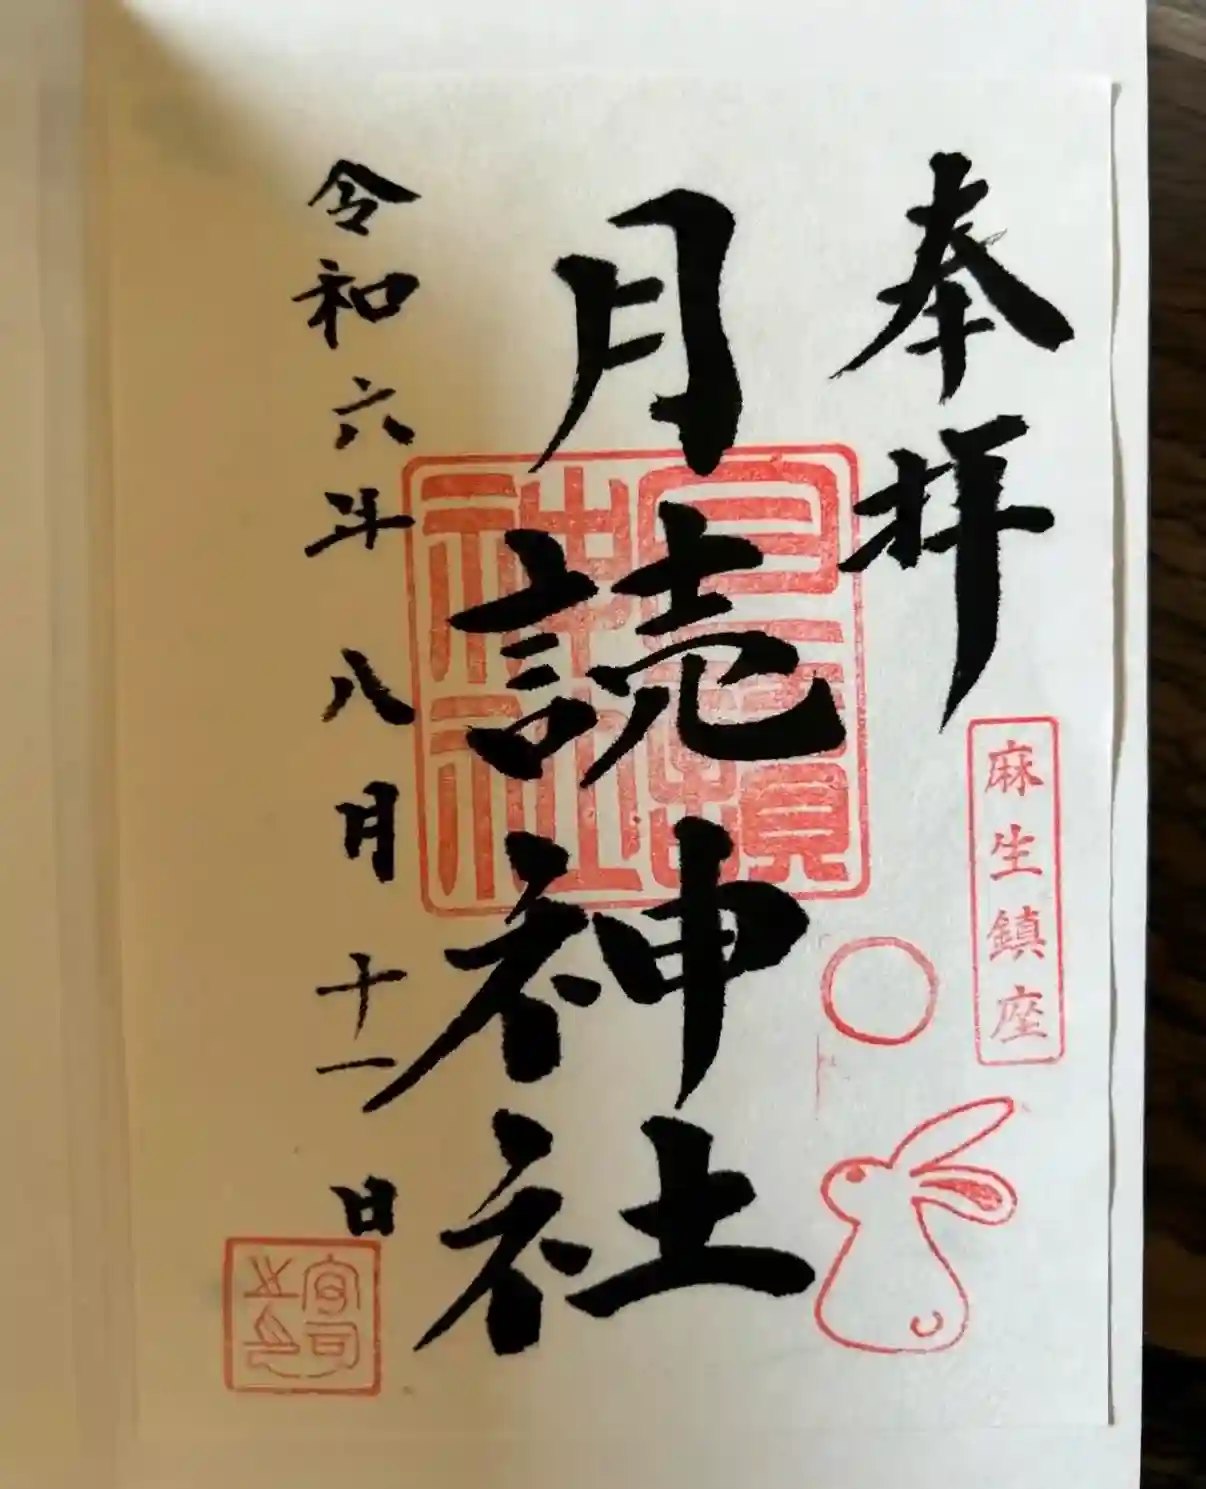 奉拝
麻生鎮座
月読神社
月讀神社
令和六年八月十一日
宮司之印